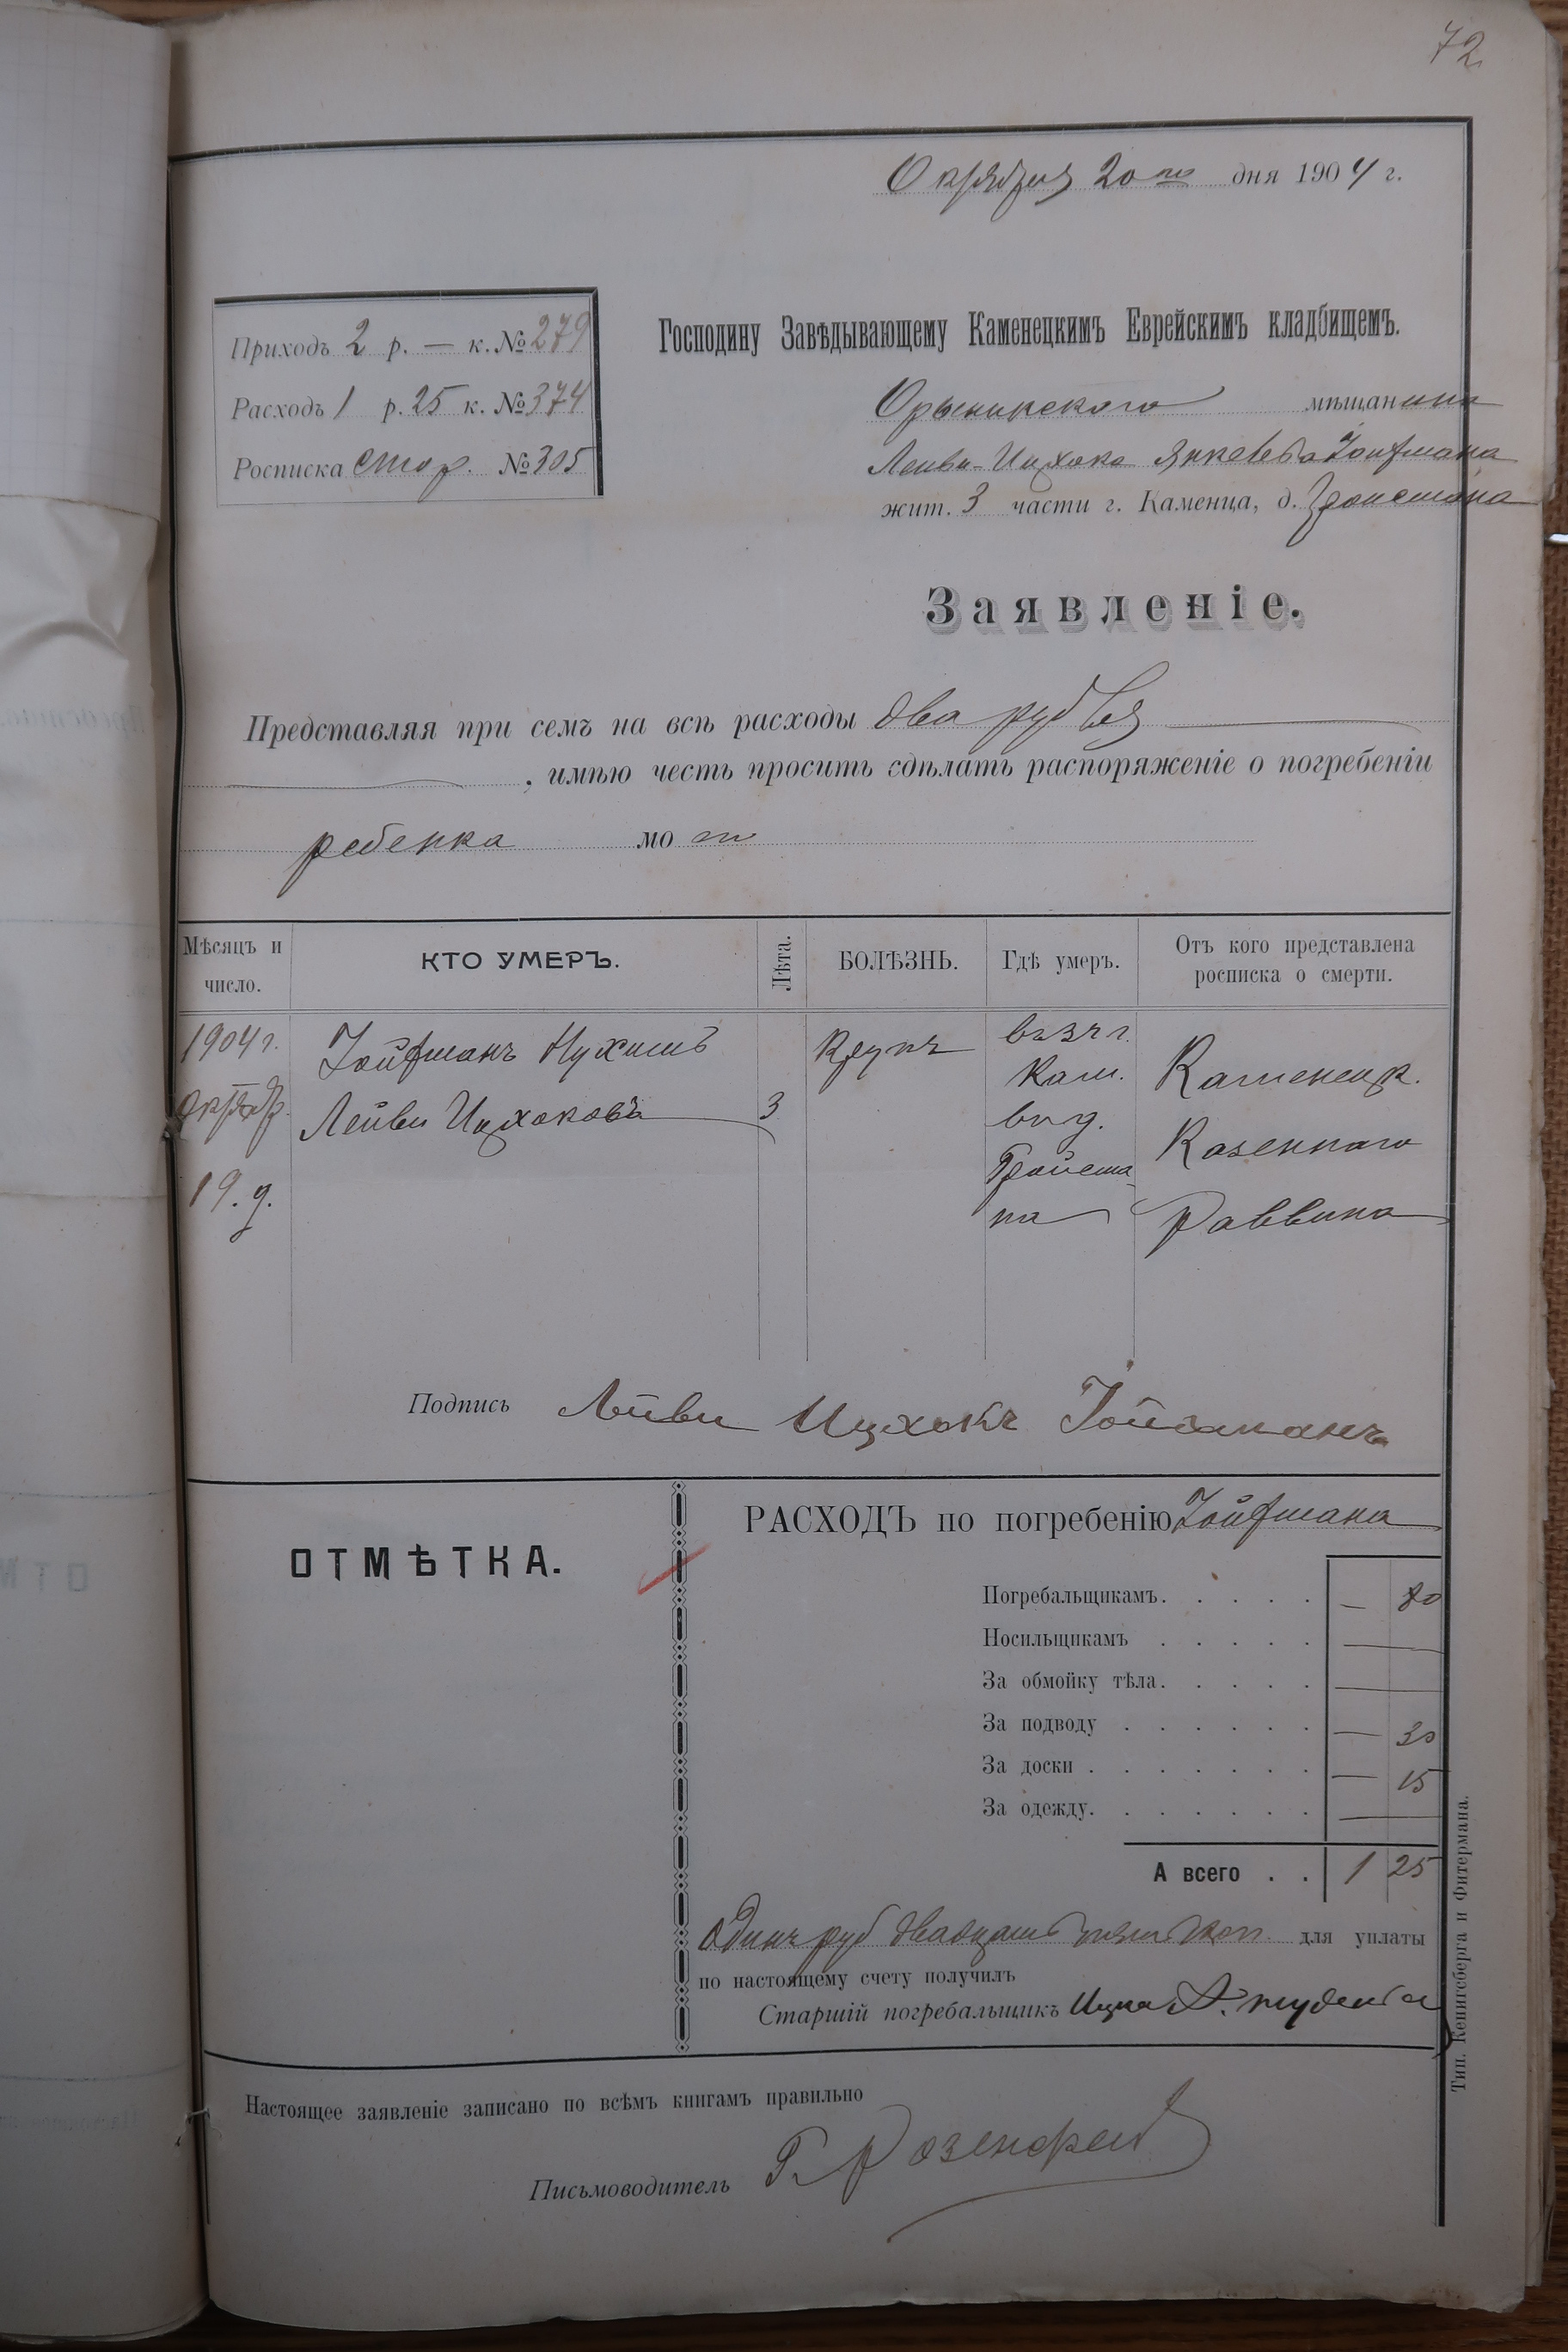 72
Октября 20го дня 1904 г.
Приходъ 2 р. — к. № 279
Расходъ 1 р. 25 к. № 374
Росписка стор. № 305
Господину Завѣдывающему Каменецкимъ Еврейскимъ кладбищемъ.
Орынинского мѣщанина
Лейви-Ицхока Янкелева Гойфмана
жит. 3 части г. Каменца, д. Гройсмана
Заявленіе.
Представляя при семъ на всѣ расходы два рубля
, имѣю честь просить сдѣлать распоряженіе о погребеніи
ребенка мо
Мѣсяцъ и число.
КТО УМЕРЪ.
Лѣта.
БОЛѢЗНЬ.
Гдѣ умеръ.
Отъ кого представлена росписка о смерти.
1904 г. Октябр. 19. д.
Гойфманъ Нухимъ
Лейви Ицхоковъ
3
Крупъ
въ 3 ч г. Кам. в д.
Каменецк. Казеннаго Раввина
Подпись Лейви Ицхокъ Гойфманъ
ОТМѢТКА.
РАСХОДЪ по погребенію Гойфмана
Погребальщикамъ. — 80
Носильщикамъ —
За обмойку тѣла. —
За подводу — 30
За доски — 15
За одежду. —
А всего . . 1 25
Одинъ руб двадцать пять коп. для уплаты
по настоящему счету получилъ
Старшій погребальщикъ
Настоящее заявленіе записано по всѣмъ книгамъ правильно
Письмоводитель Г. Розенфельд
Тип. Кенигсберга и Фитермана.